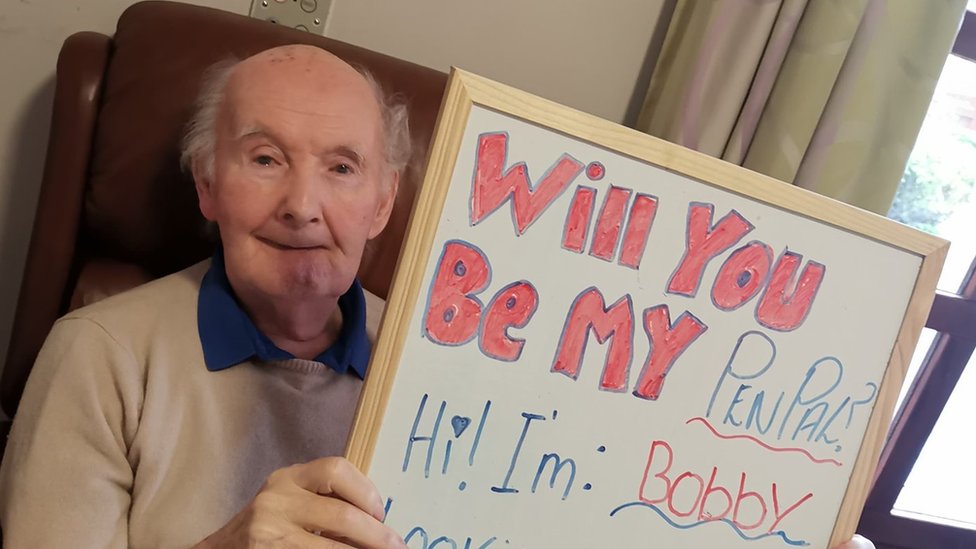 Will You
Be My
Pen Pal?
Hi! I'm:
Bobby